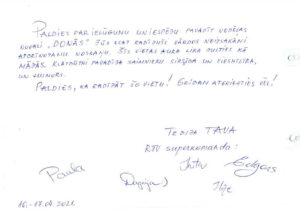 PALDIES PAR IELŪGUMU UN IESPĒDU PAVADĪT NEDĒĻAS
NOGALI "DONĀS" JŪS ESAT RADĪJUŠI VĀRDOS NEIZSAKĀMI
BRĪNIŠĶĪGU NOSKAŅU. ŠĪS VIETAS AURA LIKA JUSTIES KĀ
MĀJĀS. KLĀTBŪTNI PAVADĪJA SAIMNIEKU SIRSNĪBA UN VIESMĪLĪBA,
UN HUMORS.
PALDIES, KA RADĪJĀT ŠO VIETU! GRIBAM ATGRIEZTIES VĒL!
TEIKSMA TAVA
RTU superkomanda:
Paula
Dagnija)
Inta
Edgars
Ilze
16.-17.04.2021